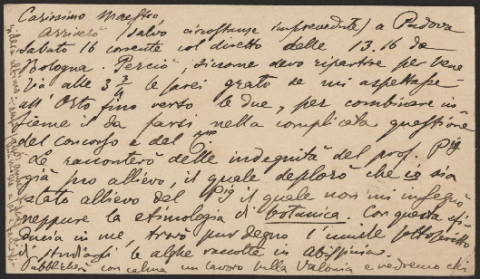 Carissimo Maestro,
Arriverò (salvo circostanze imprevedute) a Padova
Sabato 16 corrente col diretto delle 13.16 da
Bologna. Perciò, siccome devo ripartire per Vene
zia alle 3 3/4 le sarei grato se mi aspettasse
all'Orto fino verso le due, per combinare in
sieme il da farsi nella complicata questione
del concorso e del
Le racconterò delle indegnità del prof. Pig
già mio allievo, il quale deplorò che io sia
stato allievo del Pig il quale non mi insegnò
neppure la etimologia di botanica. Con questa sfi
ducia in me, trovò pur degno l'umile sottoscritto
di studiargli le alghe raccolte in Abissinia.
Pubblicherò con calma un lavoro sulla Valonia e vedremo chi